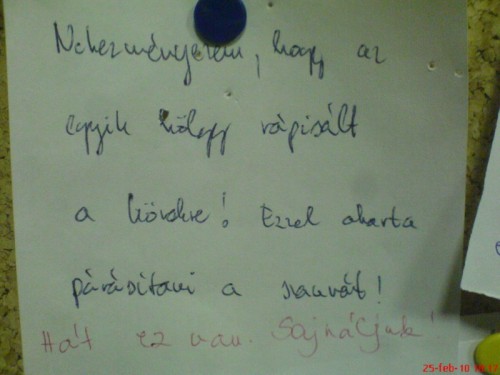 Nehezményezem, hogy az
egyik hölgy rápisált
a kövekre! Ezzel akarta
párásítani a szaunát!
Hát ez van. Sajnáljuk!
25-feb-10